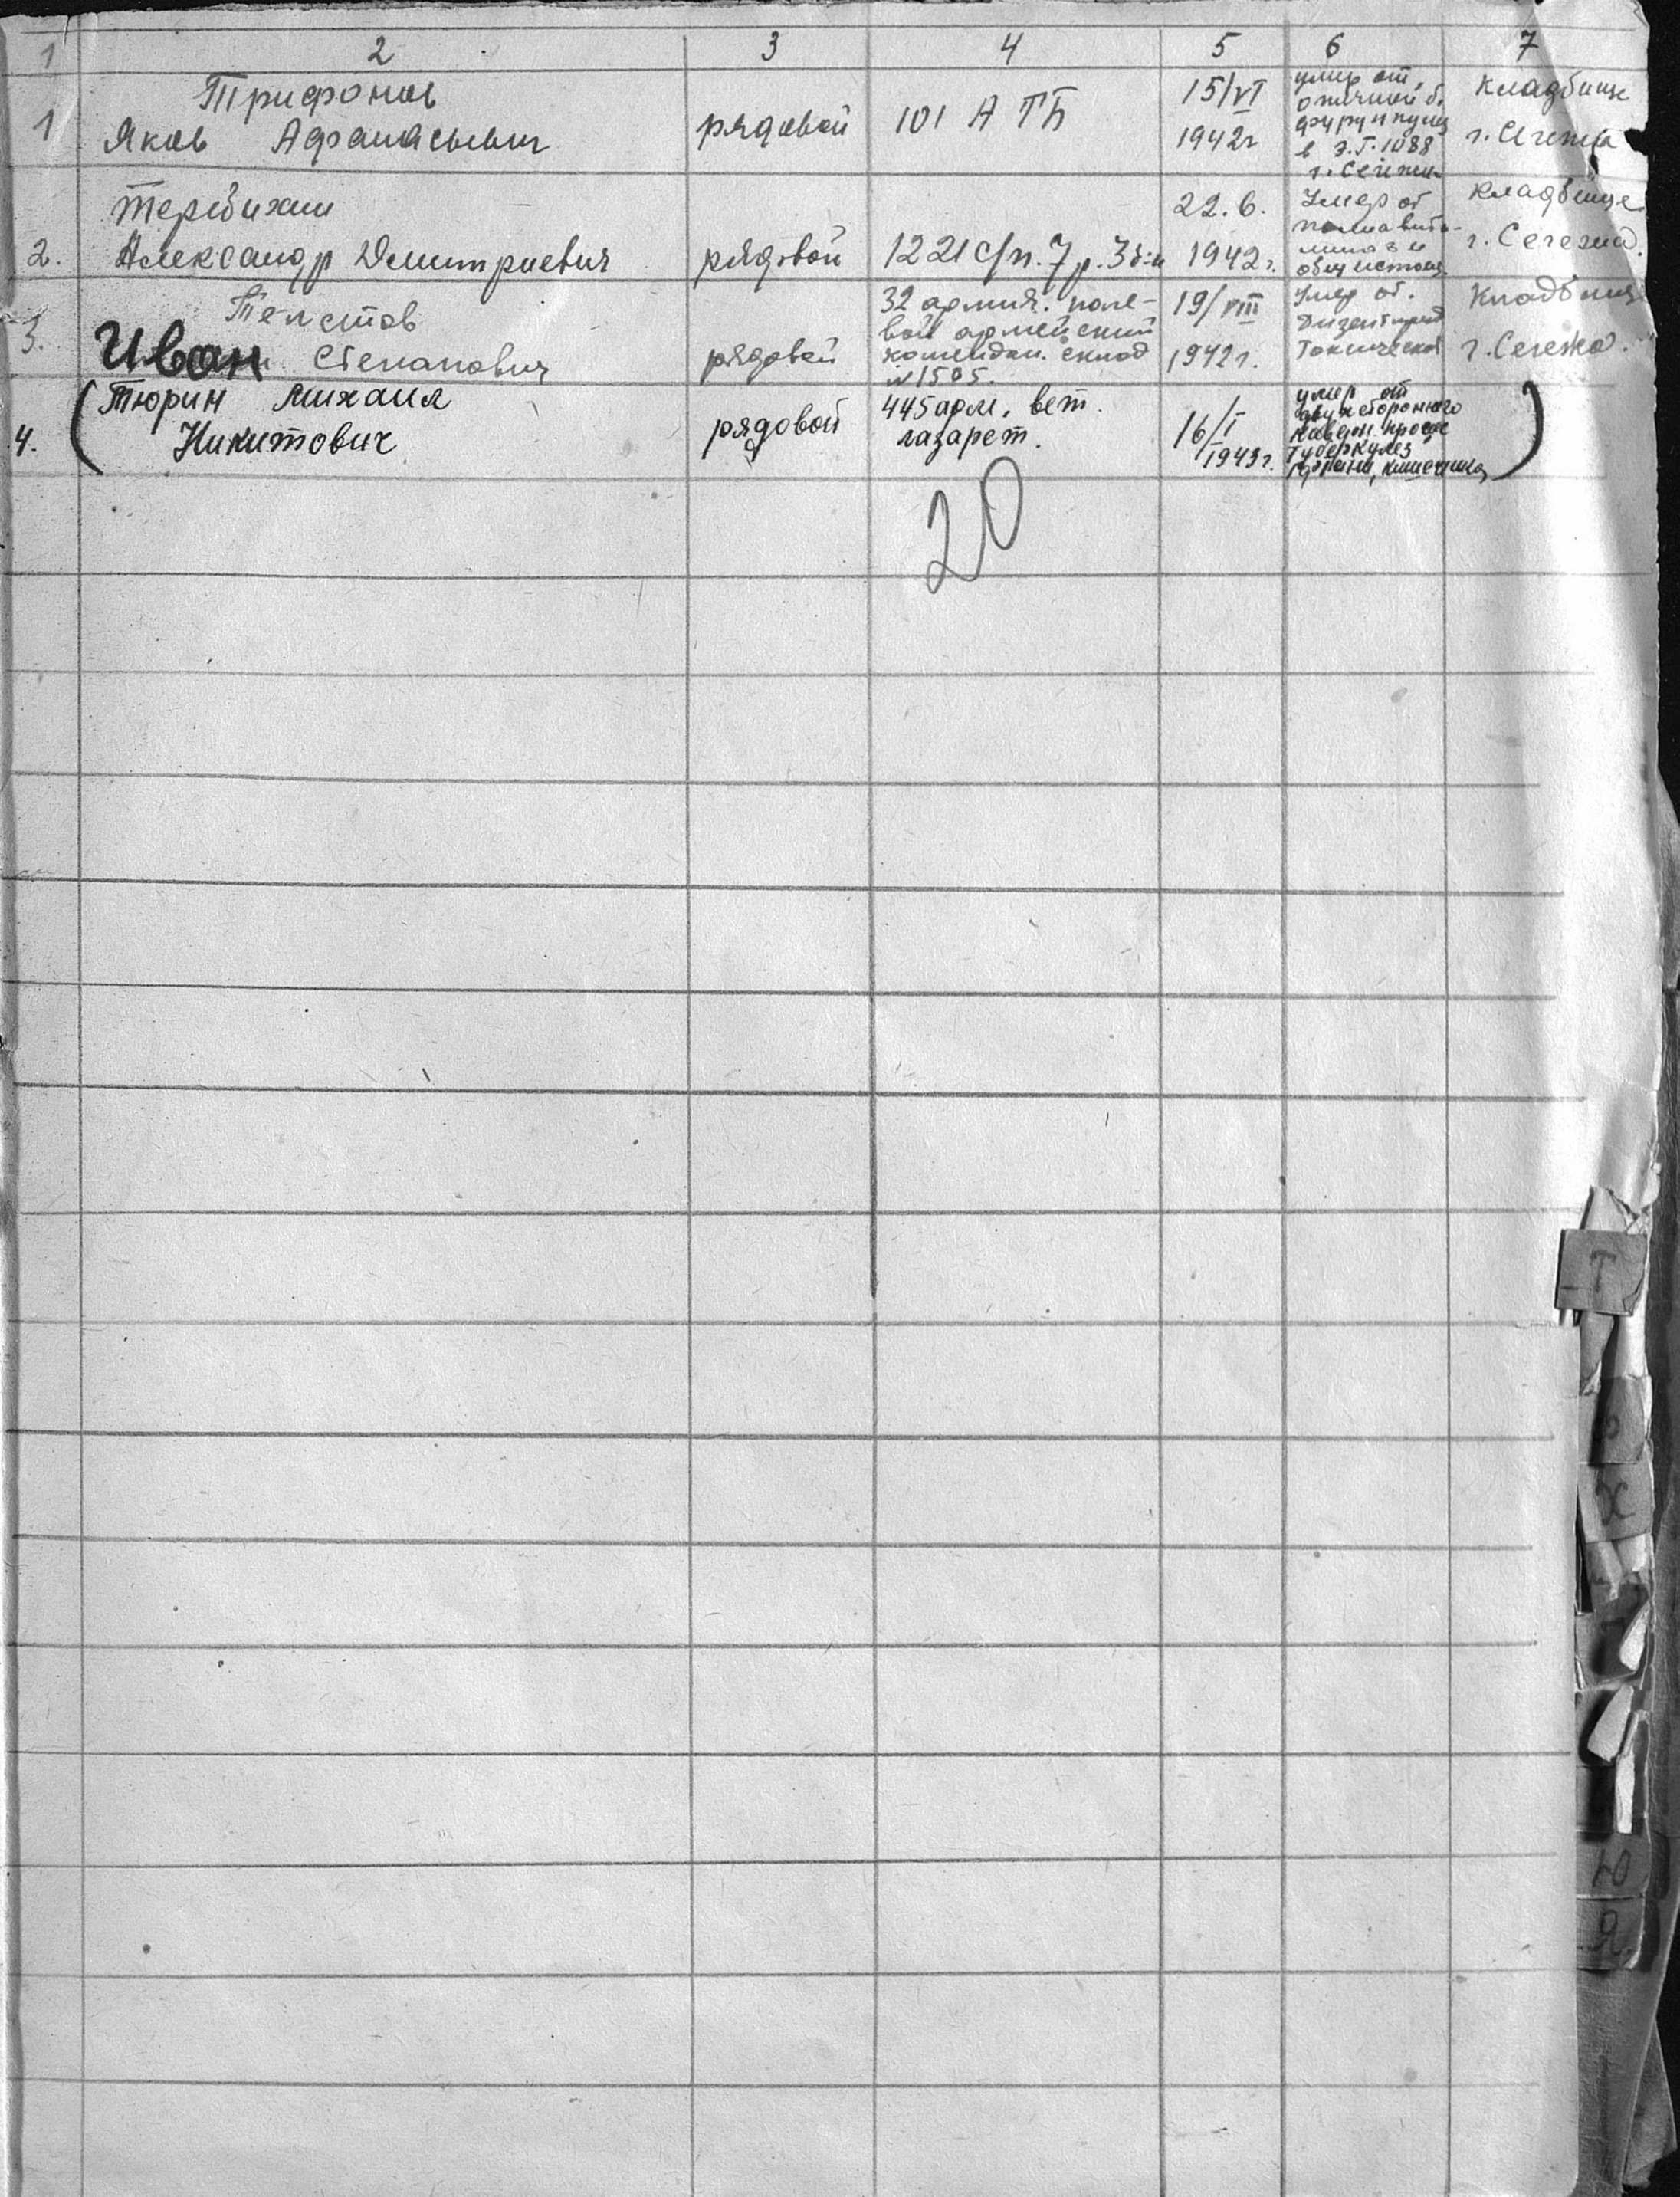 1 2 3 4 5 6 7
1
Трифонов
Яков Афанасьевич
рядовой
101 А ТБ
15/VI
1942г
умер от
фурункулез
в Э.Г. 1088
г. Сегежи
кладбище
г. Сегежа
2.
Теребихин
Александр Дмитриевич
рядовой
1221 с/п. 7 р. 3 б-н
22.6.
1942г.
Умер от
полиавита-
миноз и
общ истощ.
кладбище
г. Сегежа.
3.
Телстов
Иван Степанович
рядовой
32 армия. поле-
вой армейский
склад
№1505.
19/VIII
1942г.
Умер от.
Токсической
Кладбище
г. Сегежа.
4.
(Тюрин Михаил
Никитович
рядовой
445 арм. вет.
лазарет.
16/I
1943г.
умер от
двухстороннего
туберкулез
кишечника)
20
Т
Х
Ю
Я